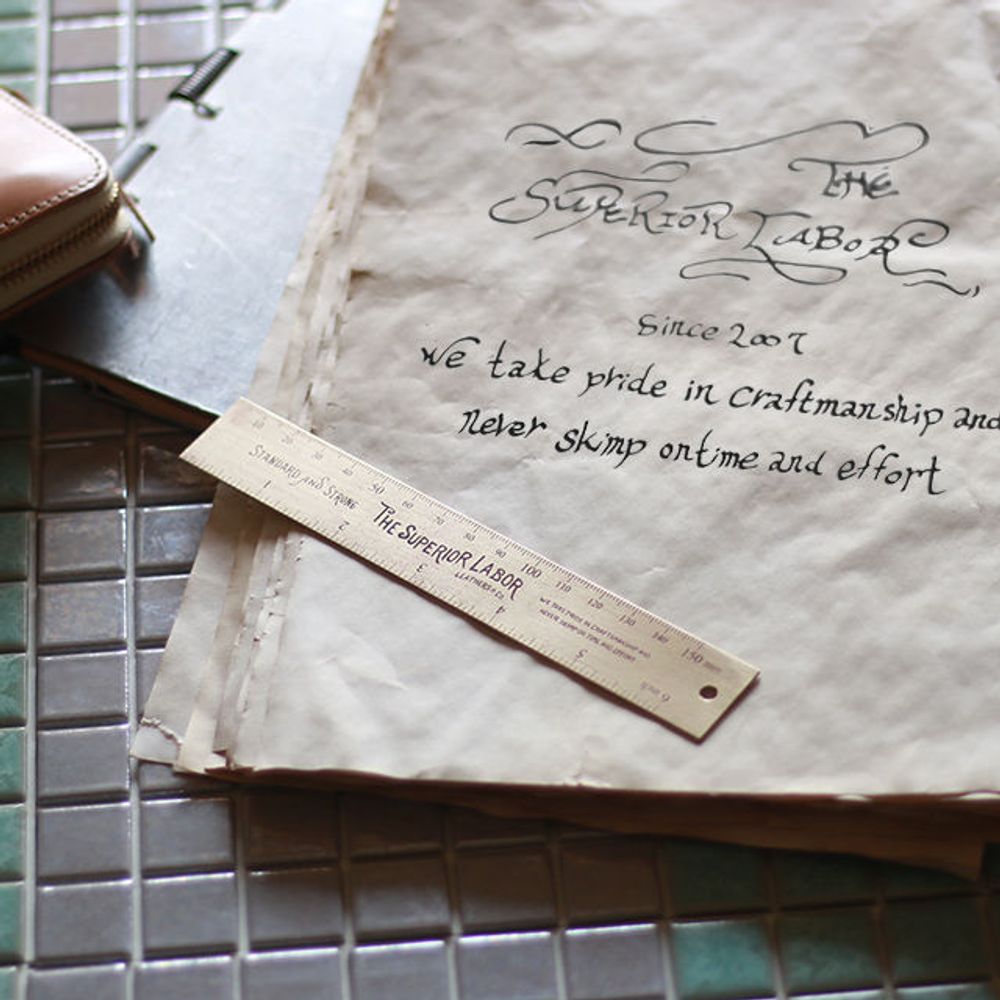 THE
SUPERIOR LABOR,
Since 2007
We take pride in craftmanship and
never skimp ontime and effort
10 20 30 40 50 60 70 80 90 100 110 120 130 140 150 mm
STANDARD AND STRONG
THE SUPERIOR LABOR
LEATHERS & CO.
WE TAKE PRIDE IN CRAFTSMANSHIP AND
NEVER SKIMP ON TIME AND EFFORT
1 2 3 4 5 6 inch